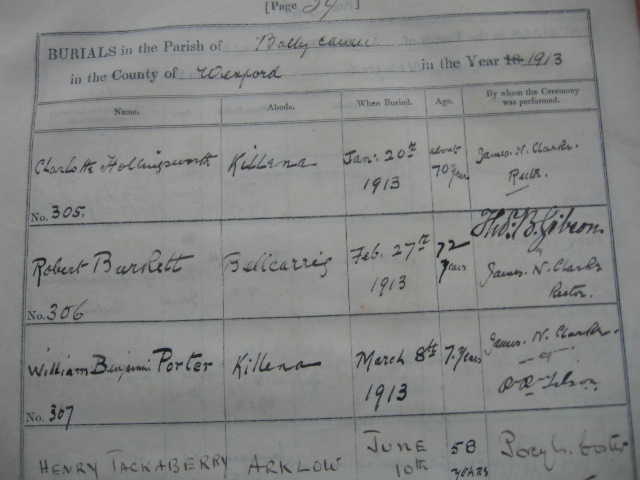 [Page 34]
BURIALS in the Parish of Ballycanew
in the County of Wexford in the Year 18 1913
Name. Abode. When Buried. Age. By whom the Ceremony was performed.
Charlotte Hollingsworth Killena Jan: 20th 1913 about 70 Years James. N. Clarke. Rector.
No. 305.
Robert Burkett Bellcarrig Feb. 27th 1913 72 years Thos. B. Gibson James. N. Clarke Rector.
No. 306
William Benjamin Porter Killena March 8th 1913 7. Years James. N. Clarke.
No. 307
HENRY TACKABERRY ARKLOW JUNE 10th 58 YEARS